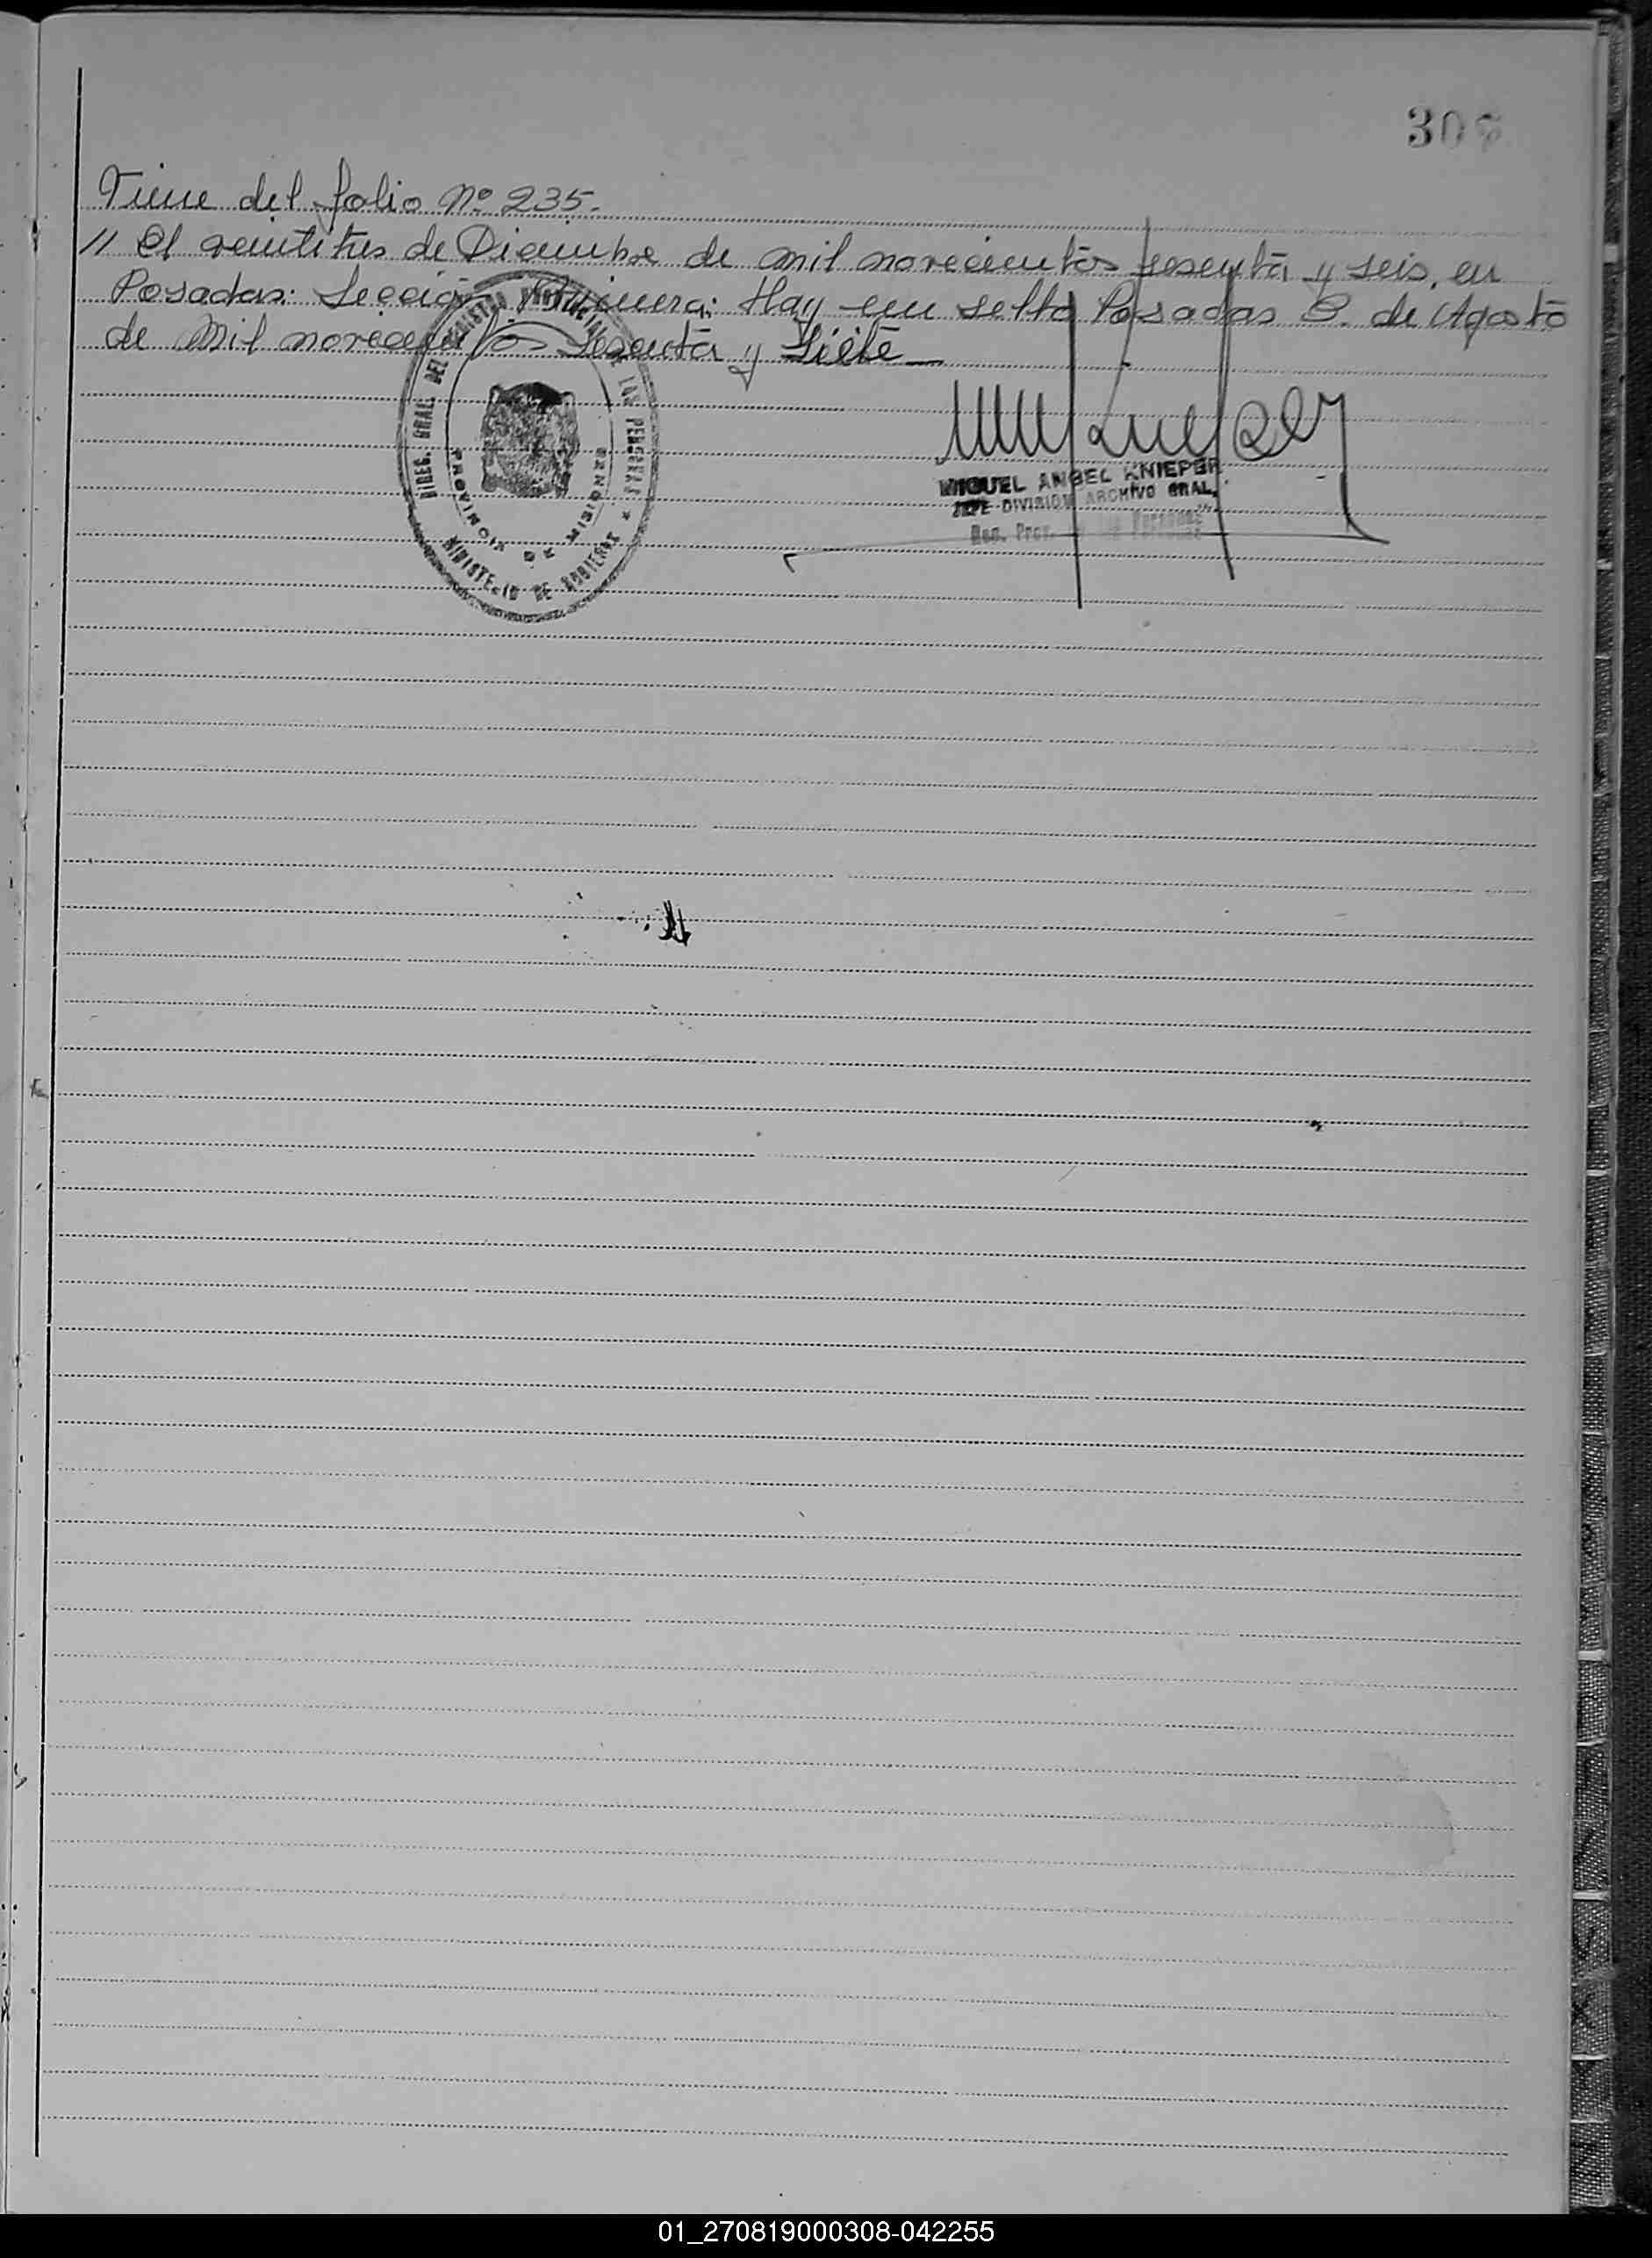 30
Viene del folio Nº 235.-
// el veintitres de Diciembre de mil novecientos sesenta y seis, en
Posadas: Sección Primera: Hay un sello Posadas 8. de Agosto
de Mil novecientos Sesenta y Siete
DIREC. GRAL. DEL REGISTRO PROVINCIAL DE LAS PERSONAS
PROVINCIA DE MISIONES
MINISTERIO DE GOBIERNO
MIGUEL ANGEL KNIEPER
JEFE DIVISION ARCHIVO GRAL.
Reg. Prov. de las Personas
01_270819000308-042255